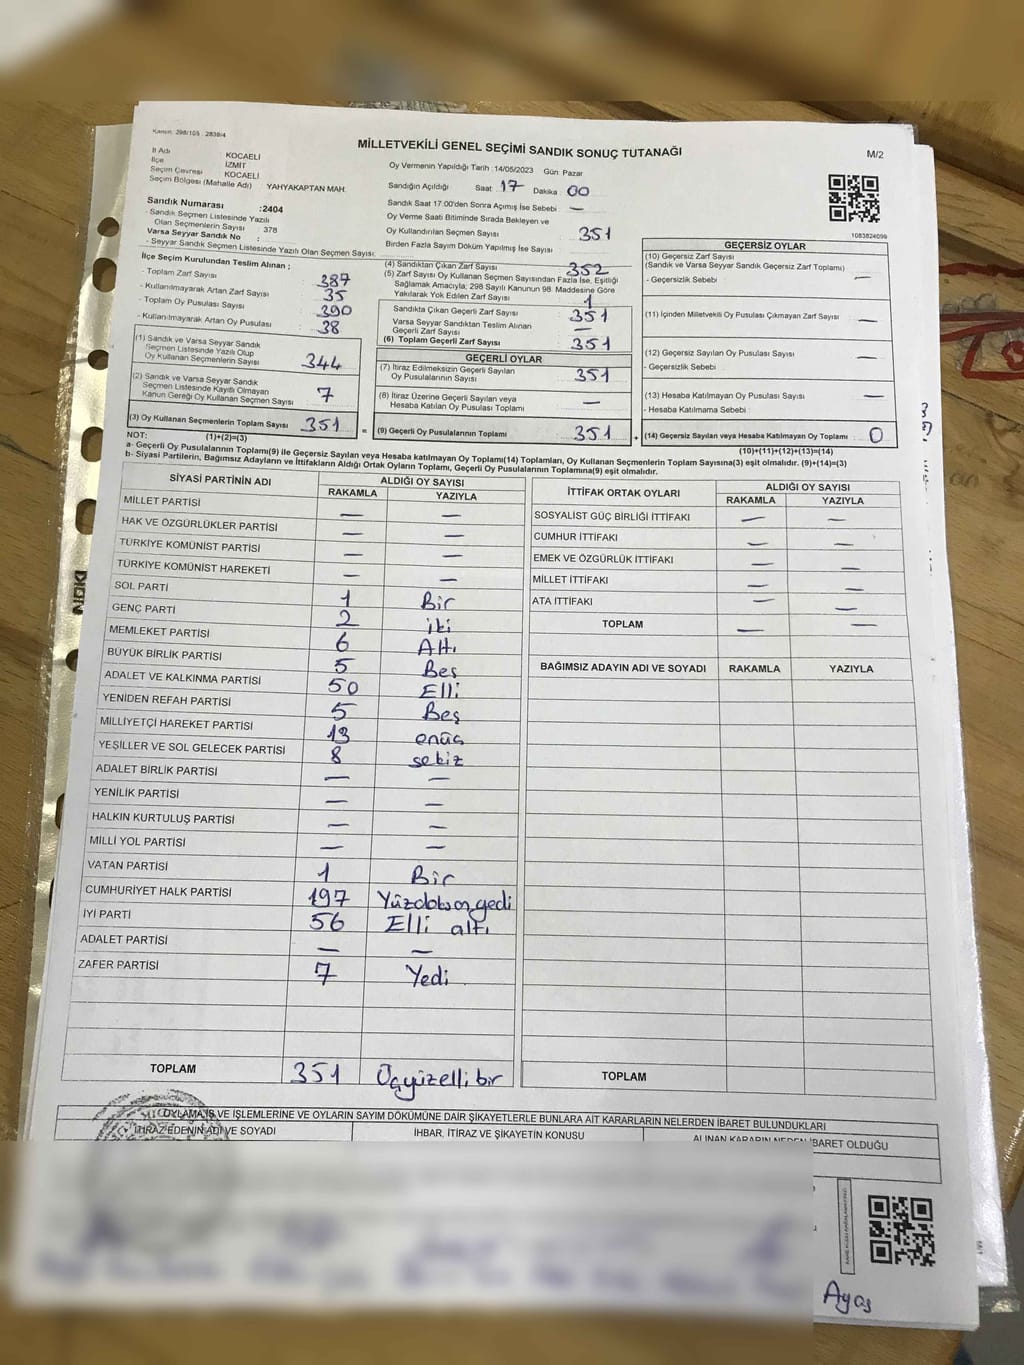 Kanun: 298/105 , 2839/4
MİLLETVEKİLİ GENEL SEÇİMİ SANDIK SONUÇ TUTANAĞI
M/2
İl Adı KOCAELİ
İlçe İZMİT
Seçim Çevresi KOCAELİ
Seçim Bölgesi (Mahalle Adı) YAHYAKAPTAN MAH.
Sandık Numarası :2404
- Sandık Seçmen Listesinde Yazılı
Olan Seçmenlerin Sayısı : 378
Varsa Seyyar Sandık No :
- Seyyar Sandık Seçmen Listesinde Yazılı Olan Seçmen Sayısı:
Oy Vermenin Yapıldığı Tarih :14/05/2023 Gün: Pazar
Sandığın Açıldığı Saat 17 Dakika 00
Sandık Saat 17:00'den Sonra Açımış İse Sebebi —
Oy Verme Saati Bitiminde Sırada Bekleyen ve
Oy Kullandırılan Seçmen Sayısı 351
Birden Fazla Sayım Döküm Yapılmış İse Sayısı
1083824099
İlçe Seçim Kurulundan Teslim Alınan ;
- Toplam Zarf Sayısı 387
- Kullanılmayarak Artan Zarf Sayısı 35
- Toplam Oy Pusulası Sayısı 390
- Kullanılmayarak Artan Oy Pusulası 38
(1) Sandık ve Varsa Seyyar Sandık
Seçmen Listesinde Yazılı Olup
Oy Kullanan Seçmenlerin Sayısı 344
(2) Sandık ve Varsa Seyyar Sandık
Seçmen Listesinde Kayıtlı Olmayan
Kanun Gereği Oy Kullanan Seçmen Sayısı 7
(3) Oy Kullanan Seçmenlerin Toplam Sayısı 351
(4) Sandıktan Çıkan Zarf Sayısı 352
(5) Zarf Sayısı Oy Kullanan Seçmen Sayısından Fazla İse, Eşitliği
Sağlamak Amacıyla; 298 Sayılı Kanunun 98. Maddesine Göre
Yakılarak Yok Edilen Zarf Sayısı 1
Sandıkta Çıkan Geçerli Zarf Sayısı 351
Varsa Seyyar Sandıktan Teslim Alınan
Geçerli Zarf Sayısı —
(6) Toplam Geçerli Zarf Sayısı 351
GEÇERLİ OYLAR
(7) İtiraz Edilmeksizin Geçerli Sayılan
Oy Pusulalarının Sayısı 351
(8) İtiraz Üzerine Geçerli Sayılan veya
Hesaba Katılan Oy Pusulası Toplamı —
= (9) Geçerli Oy Pusulalarının Toplamı 351
GEÇERSİZ OYLAR
(10) Geçersiz Zarf Sayısı
(Sandık ve Varsa Seyyar Sandık Geçersiz Zarf Toplamı)
- Geçersizlik Sebebi —
(11) İçinden Milletvekili Oy Pusulası Çıkmayan Zarf Sayısı —
(12) Geçersiz Sayılan Oy Pusulası Sayısı —
- Geçersizlik Sebebi
(13) Hesaba Katılmayan Oy Pusulası Sayısı —
- Hesaba Katılmama Sebebi
+ (14) Geçersiz Sayılan veya Hesaba Katılmayan Oy Toplamı 0
NOT: (1)+(2)=(3) (10)+(11)+(12)+(13)=(14)
a- Geçerli Oy Pusulalarının Toplamı(9) ile Geçersiz Sayılan veya Hesaba Katılmayan Oy Toplamı(14) Toplamları, Oy Kullanan Seçmenlerin Toplam Sayısına(3) eşit olmalıdır. (9)+(14)=(3)
b- Siyasi Partilerin, Bağımsız Adayların ve İttifakların Aldığı Ortak Oyların Toplamı, Geçerli Oy Pusulalarının Toplamına(9) eşit olmalıdır.
SİYASİ PARTİNİN ADI ALDIĞI OY SAYISI
RAKAMLA YAZIYLA
MİLLET PARTİSİ — —
HAK VE ÖZGÜRLÜKLER PARTİSİ — —
TÜRKİYE KOMÜNİST PARTİSİ — —
TÜRKİYE KOMÜNİST HAREKETİ — —
SOL PARTİ 1 Bir
GENÇ PARTİ 2 iki
MEMLEKET PARTİSİ 6 Altı
BÜYÜK BİRLİK PARTİSİ 5 Beş
ADALET VE KALKINMA PARTİSİ 50 Elli
YENİDEN REFAH PARTİSİ 5 Beş
MİLLİYETÇİ HAREKET PARTİSİ 13 onüç
YEŞİLLER VE SOL GELECEK PARTİSİ 8 sekiz
ADALET BİRLİK PARTİSİ — —
YENİLİK PARTİSİ — —
HALKIN KURTULUŞ PARTİSİ — —
MİLLİ YOL PARTİSİ — —
VATAN PARTİSİ 1 Bir
CUMHURİYET HALK PARTİSİ 197 Yüzdoksanyedi
İYİ PARTİ 56 Elli altı
ADALET PARTİSİ — —
ZAFER PARTİSİ 7 Yedi
TOPLAM 351 Üçyüzellibir
İTTİFAK ORTAK OYLARI ALDIĞI OY SAYISI
RAKAMLA YAZIYLA
SOSYALİST GÜÇ BİRLİĞİ İTTİFAKI — —
CUMHUR İTTİFAKI — —
EMEK VE ÖZGÜRLÜK İTTİFAKI — —
MİLLET İTTİFAKI — —
ATA İTTİFAKI — —
TOPLAM — —
BAĞIMSIZ ADAYIN ADI VE SOYADI RAKAMLA YAZIYLA
TOPLAM
OYLAMA İŞ VE İŞLEMLERİNE VE OYLARIN SAYIM DÖKÜMÜNE DAİR ŞİKAYETLERLE BUNLARA AİT KARARLARIN NELERDEN İBARET BULUNDUKLARI
İTİRAZ EDENİN ADI VE SOYADI İHBAR, İTİRAZ VE ŞİKAYETİN KONUSU ALINAN KARARIN NEDEN İBARET OLDUĞU
Ayaş